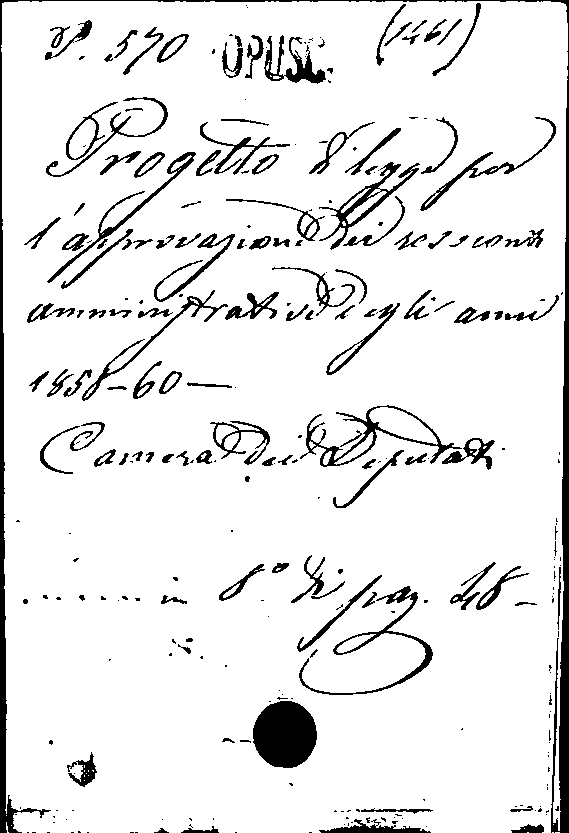 P. 570 OPUSC. (1461)
Progetto di legge per
l'approvazione dei resconti
amministrativi degli anni
1858-60 —
Camera dei Deputati
in 8° di pag. 48 -